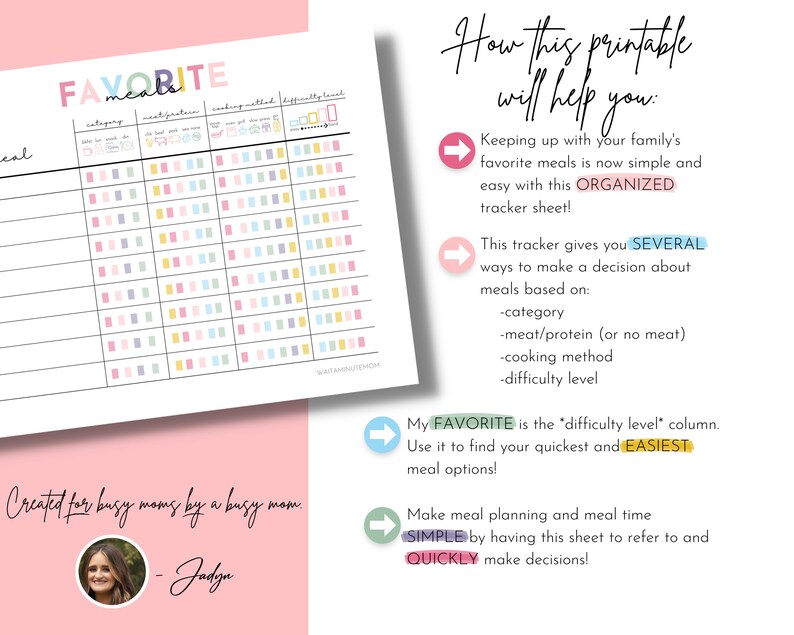 FAVORITE
meals
category
meat/protein
cooking method
difficulty level
easy
hard
WAITAMINUTEMOM
Created for busy moms by a busy mom.
- Jadyn
How this printable
will help you:
Keeping up with your family's
favorite meals is now simple and
easy with this ORGANIZED
tracker sheet!
This tracker gives you SEVERAL
ways to make a decision about
meals based on:
-category
-meat/protein (or no meat)
-cooking method
-difficulty level
My FAVORITE is the *difficulty level* column.
Use it to find your quickest and EASIEST
meal options!
Make meal planning and meal time
SIMPLE by having this sheet to refer to and
QUICKLY make decisions!